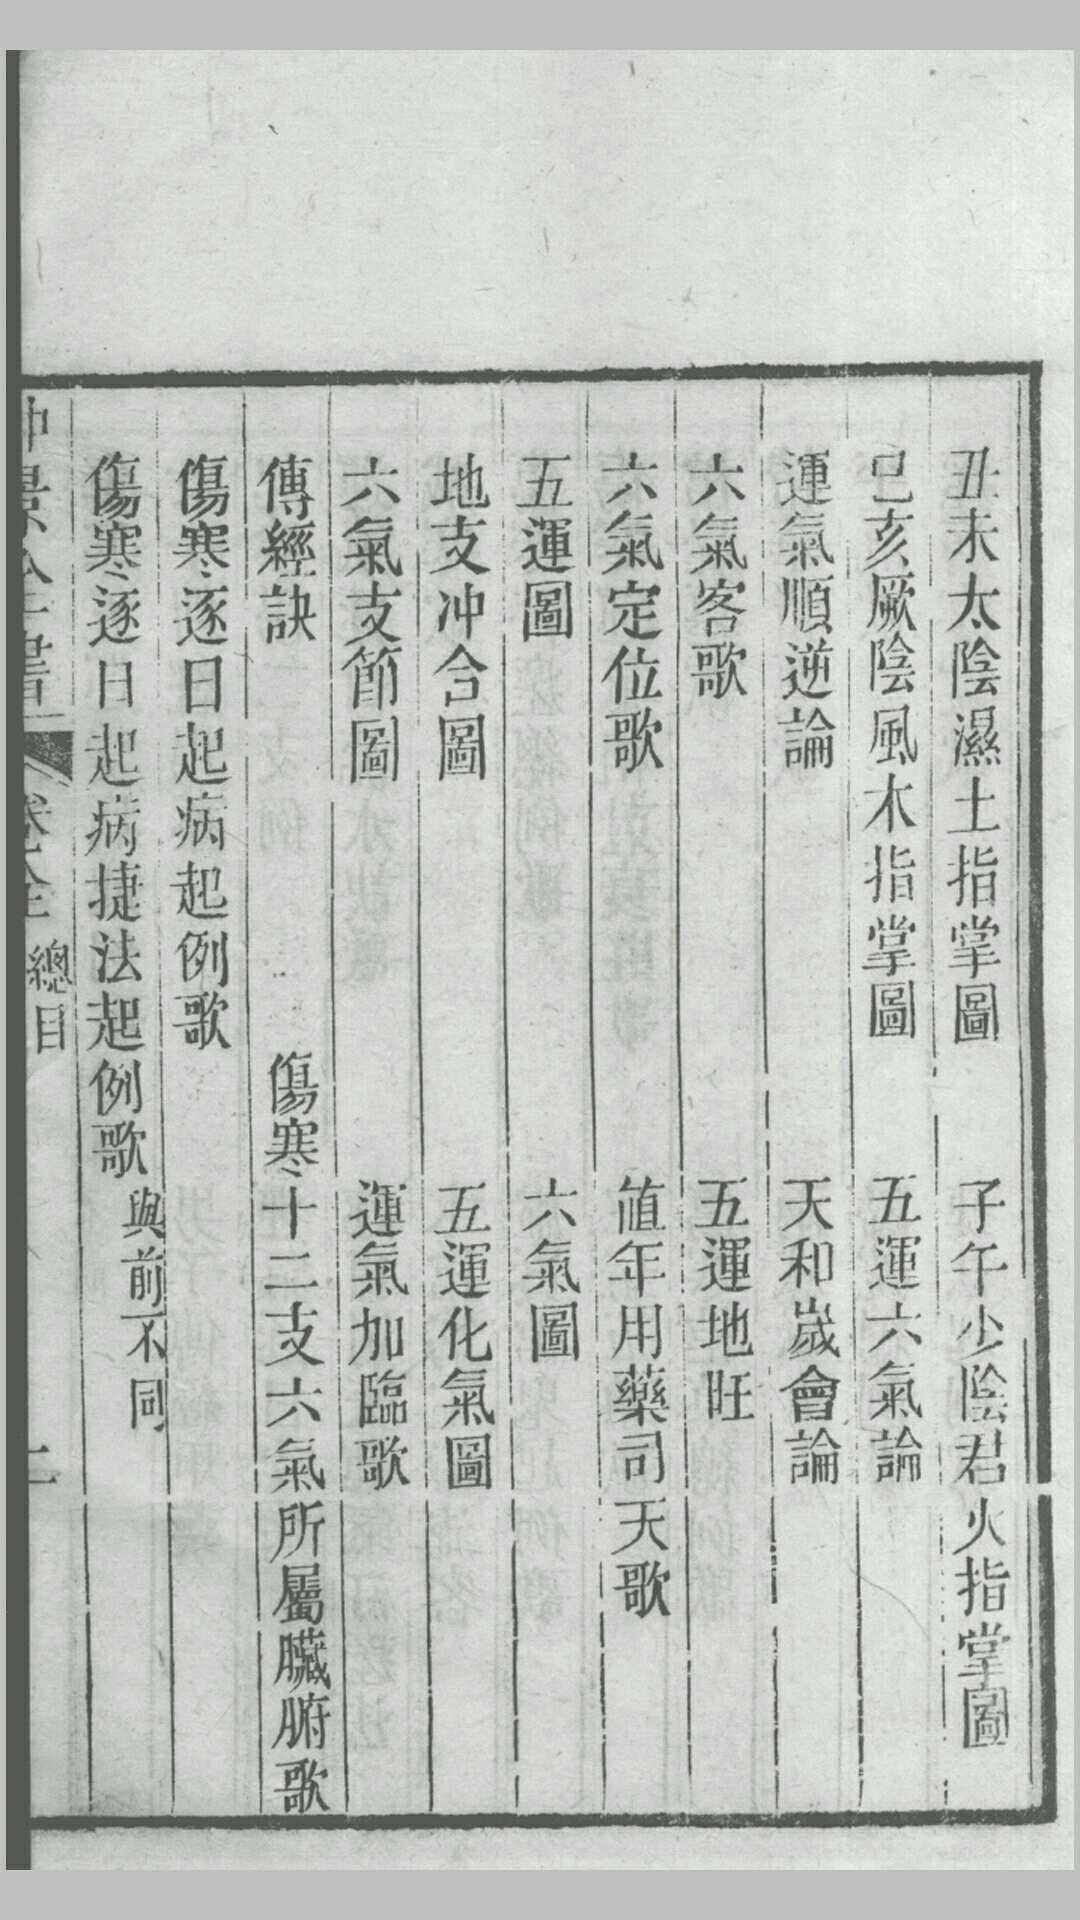 丑未太陰濕土指掌圖　子午少陰君火指掌圖
巳亥厥陰風木指掌圖　五運六氣論
運氣順逆論　天和歲會論
六氣客歌　五運地旺
六氣定位歌　値年用藥司天歌
五運圖　六氣圖
地支冲合圖　五運化氣圖
六氣支節圖　運氣加臨歌
傳經訣　傷寒十二支六氣所屬臟腑歌
傷寒逐日起病起例歌
傷寒逐日起病捷法起例歌 與前不同
總目